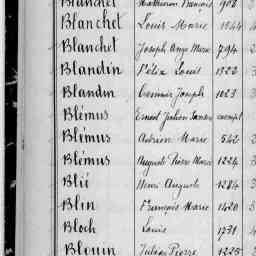 Blanchet Mathurin François 908
Blanchet Louis Marie 1844 4
Blanchet Joseph Ange Marie 794 2
Blandin Félix Louis 1322 3
Blandin Casimir Joseph 1023 3
Blémus Ernest Julien exempt
Blémus Adrien Marie 542 3
Blémus Auguste Pierre Marie 1224 3
Blié Henri Auguste 1284 3
Blin François Marie 1420 5
Bloch Louis 1731 4
Blouin Julien Pierre 1225 3